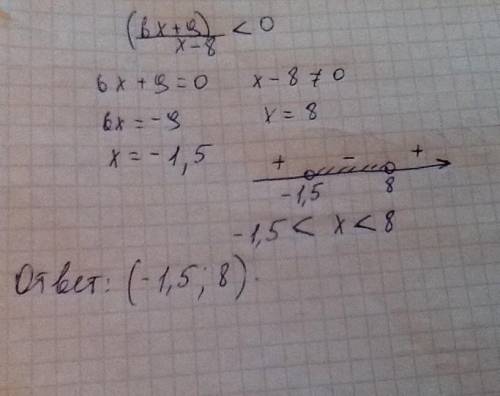 (6x+9)/(x-8) < 0
6x+9=0 x-8≠0
6x=-9 x=8
x=-1,5
+ - +
-1,5 8
-1,5 < x < 8
Ответ: (-1,5; 8).